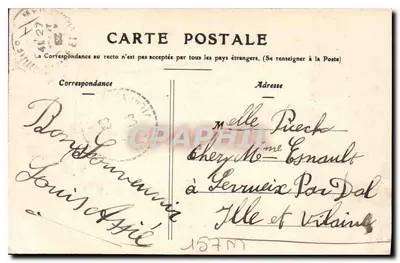 CARTE POSTALE
La Correspondance au recto n'est pas acceptée par tous les pays étrangers. (Se renseigner à la Poste)
Correspondance
Adresse
Bon Souvenir
Louis
Melle Puech
Chez Mme Esnault
à Par Dol
Ille et Vilaine
CARTE
157M